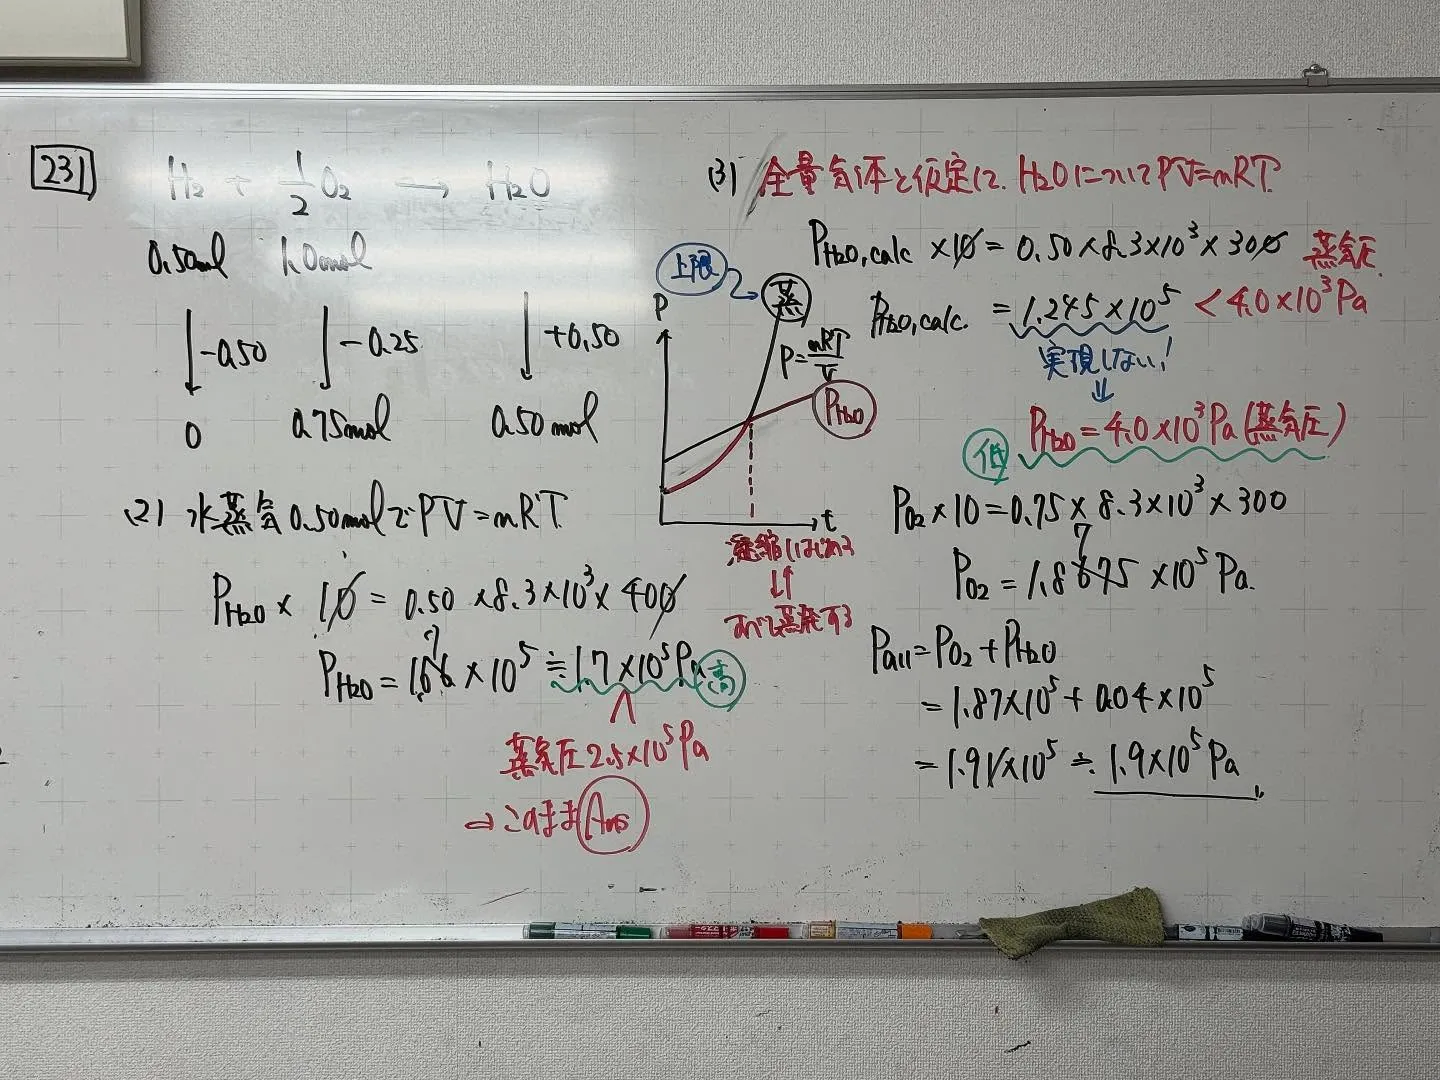 231
H₂ + 1/2 O₂ → H₂O
0.50mol 1.0mol
-0.50 -0.25 +0.50
0 0.75mol 0.50mol
(2) 水蒸気0.50molでPV=nRT
P_H₂O × 10 = 0.50 × 8.3×10³ × 400
P_H₂O = 1.66 × 10⁵ ≒ 1.7×10⁵Pa 高
7
∧
蒸気圧2.5×10⁵Pa
⇒ このまま Ans
上限
蒸
P
P=nRT/V
P_H₂O
t
凝縮はじめる
↓↑
すべて蒸発する
(3) 全量気体と仮定して、H₂OについてPV=nRT
P_H₂O,calc ×10 = 0.50×8.3×10³×300
蒸気圧
P_H₂O,calc. = 1.245×10⁵ < 4.0×10³Pa
実現しない!
⇓
P_H₂O=4.0×10³Pa(蒸気圧)
低
P_O₂×10=0.75×8.3×10³×300
7
P_O₂=1.8675×10⁵Pa.
P_all=P_O₂+P_H₂O
=1.87×10⁵+0.04×10⁵
=1.91×10⁵≒1.9×10⁵Pa